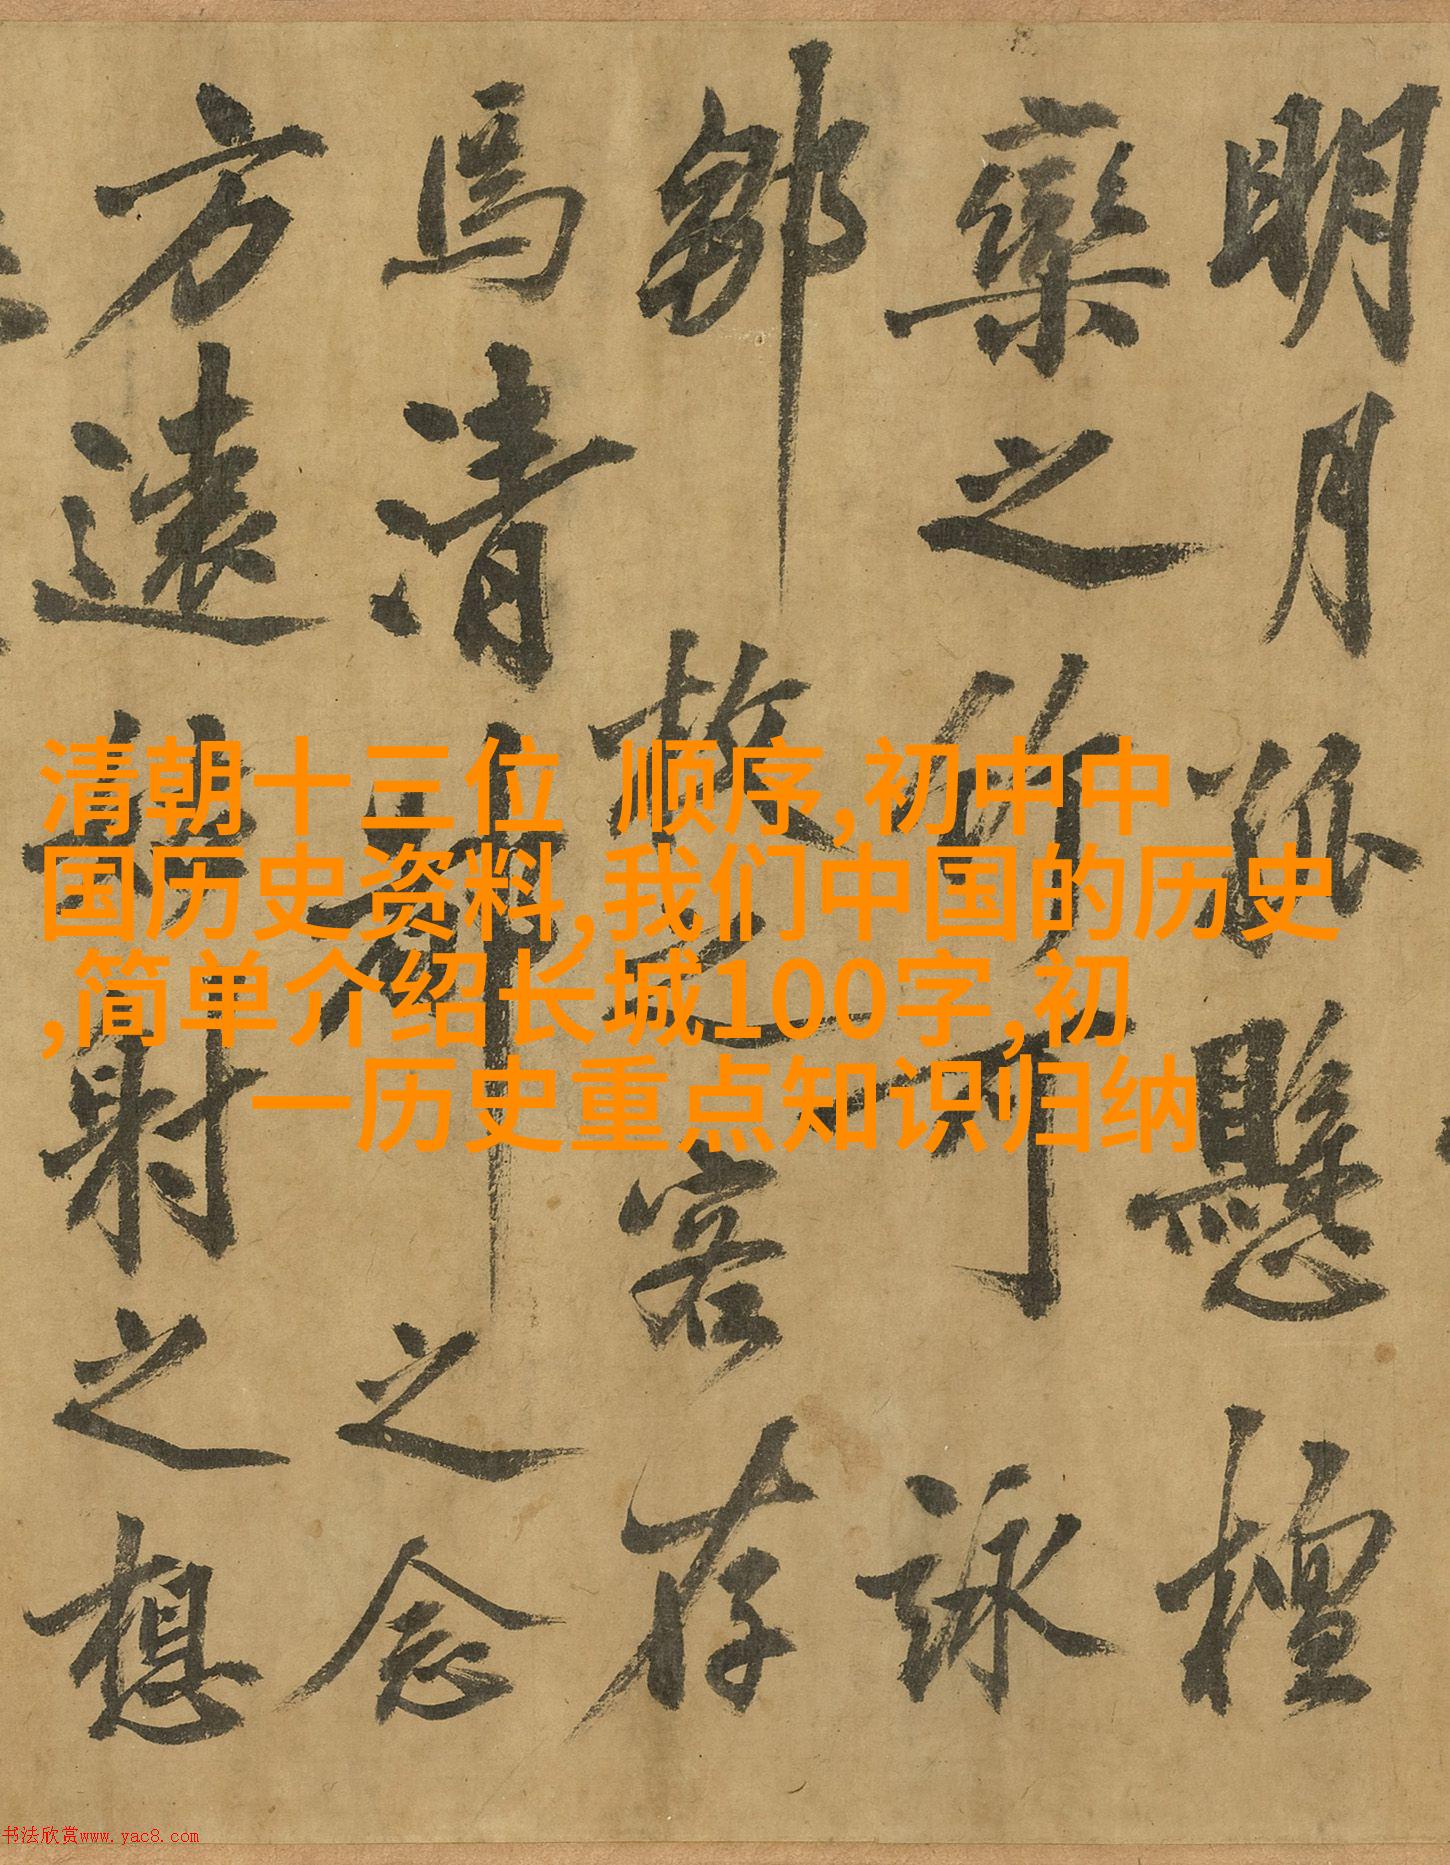 明月孤懸檀
欒之所可詠
鄒枚之客存
馬清之念
方遠射之想
清朝十三位 顺序,初中中
国历史资料,我们中国的历史
,简单介绍长城100字,初
一历史重点知识归纳
书法欣赏www.yac8.com